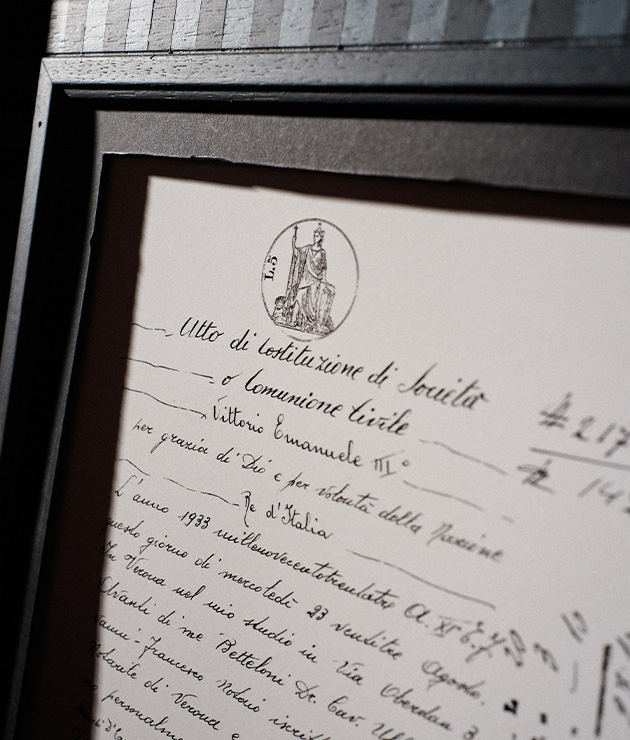 L.5
Atto di Costituzione di Società
o Comunione Civile
# 217
Vittorio Emanuele III°
# 14
per grazia di Dio e per volontà della Nazione
Re d'Italia
L'anno 1933 millenovecentotrentatre A. XI E.F.
questo giorno di mercoledì 23 ventitre Agosto.
In Verona nel mio studio in Via Oberdan 3
Avanti di me Betteloni Dr. Cav.
Francesco Notaio
Notarile di Verona e
personalmente